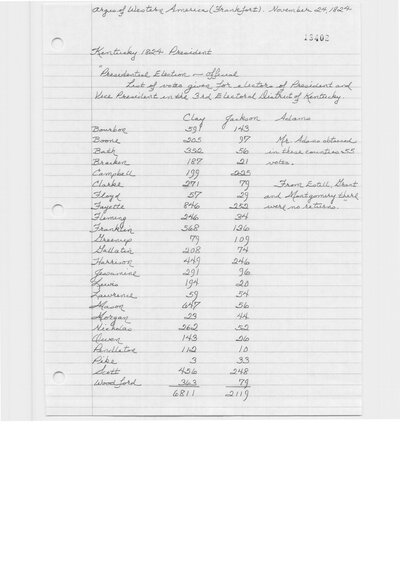 Argus of Western America (Frankfort). November 24, 1824
Kentucky 1824 President
"Presidential Election — official
List of votes given for electors of President and
Vice President in the 3rd Electoral District of Kentucky
Clay Jackson Adams
Bourbon 591 143
Boone 205 97 Mr. Adams obtained
Bath 332 56 in these counties 55
Bracken 187 21 votes.
Campbell 199 225
Clarke 271 79 From Estill, Grant
Floyd 57 29 and Montgomery there
Fayette 846 252 were no returns."
Fleming 246 34
Franklin 368 126
Greenup 79 109
Gallatin 208 74
Harrison 449 246
Jessamine 291 96
Lewis 194 20
Lawrence 59 54
Mason 647 56
Morgan 23 44
Nicholas 262 52
Owen 143 26
Pendleton 112 10
Pike 3 33
Scott 456 248
Woodford 363 79
6811 2119